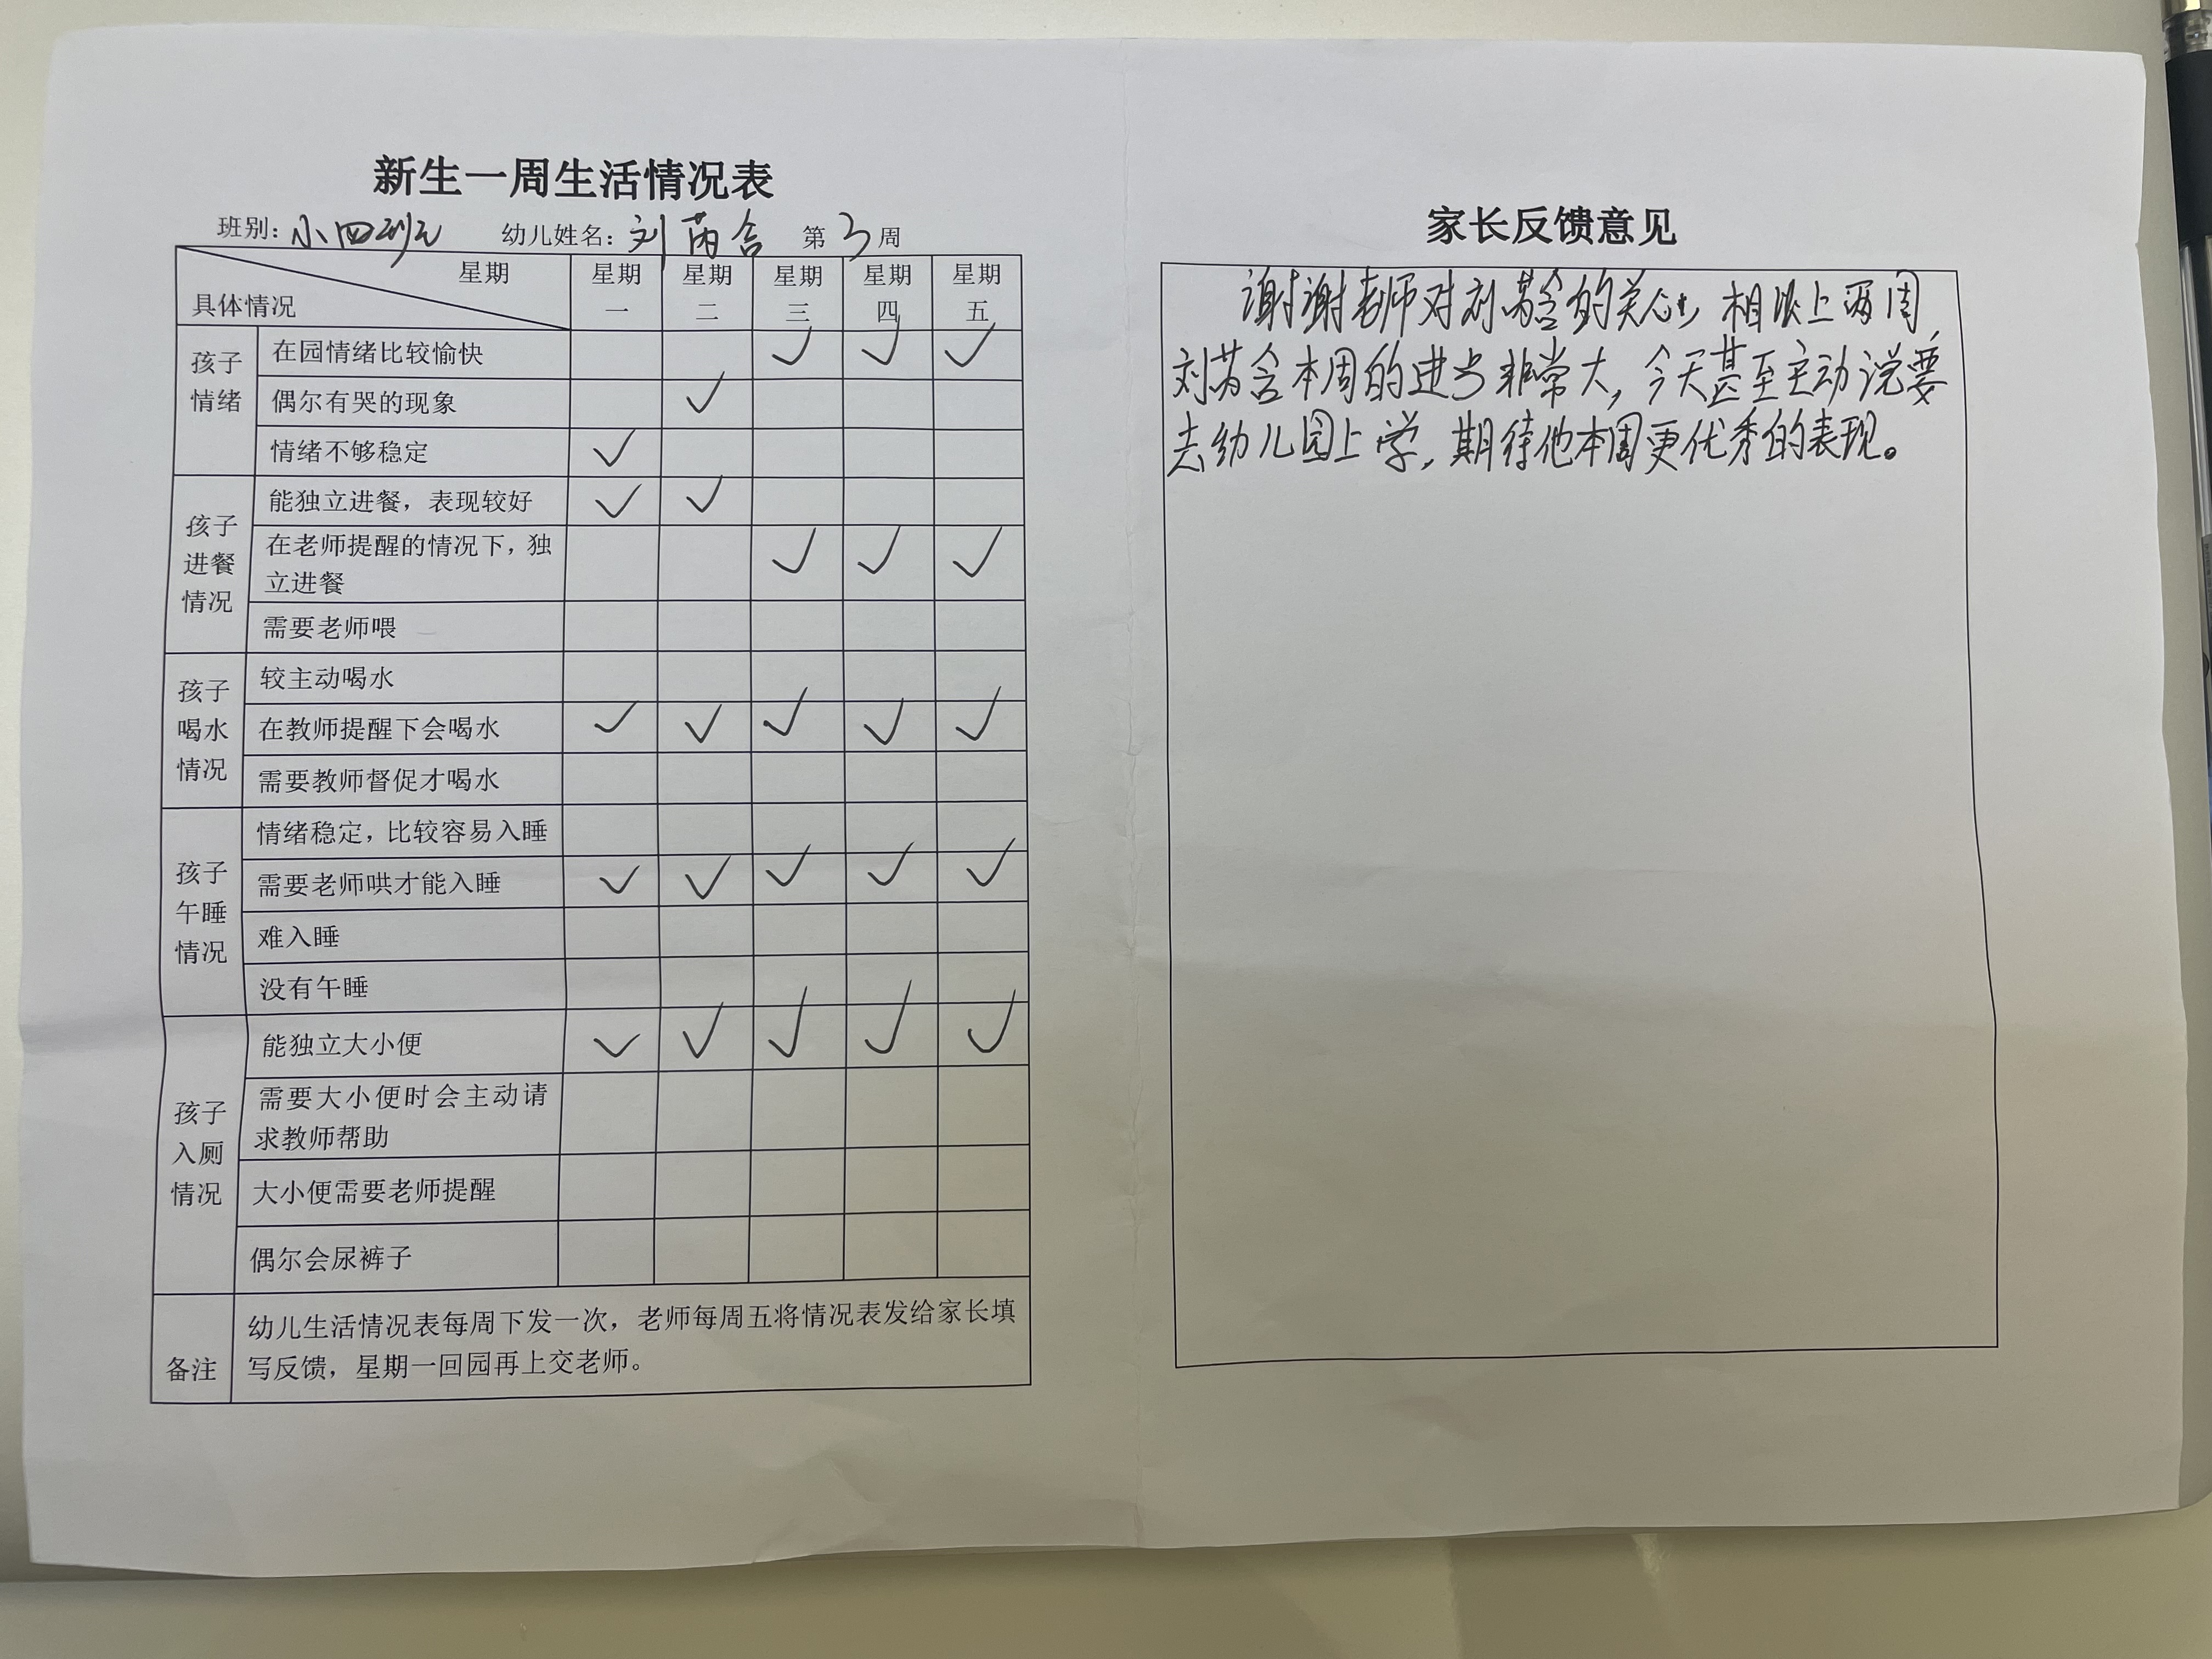 新生一周生活情况表
班别：小四班 幼儿姓名：刘芮含 第3周
星期 星期一 星期二 星期三 星期四 星期五
具体情况
孩子情绪
在园情绪比较愉快 ✓ ✓ ✓
偶尔有哭的现象 ✓
情绪不够稳定 ✓
孩子进餐情况
能独立进餐，表现较好 ✓ ✓
在老师提醒的情况下，独
立进餐 ✓ ✓ ✓
需要老师喂
孩子喝水情况
较主动喝水
在教师提醒下会喝水 ✓ ✓ ✓ ✓ ✓
需要教师督促才喝水
孩子午睡情况
情绪稳定，比较容易入睡
需要老师哄才能入睡 ✓ ✓ ✓ ✓ ✓
难入睡
没有午睡
孩子入厕情况
能独立大小便 ✓ ✓ ✓ ✓ ✓
需要大小便时会主动请
求教师帮助
大小便需要老师提醒
偶尔会尿裤子
备注
幼儿生活情况表每周下发一次，老师每周五将情况表发给家长填
写反馈，星期一回园再上交老师。
家长反馈意见
谢谢老师对刘芮含的关心，相比上两周，
刘芮含本周的进步非常大，今天甚至主动说要
去幼儿园上学，期待他本周更优秀的表现。